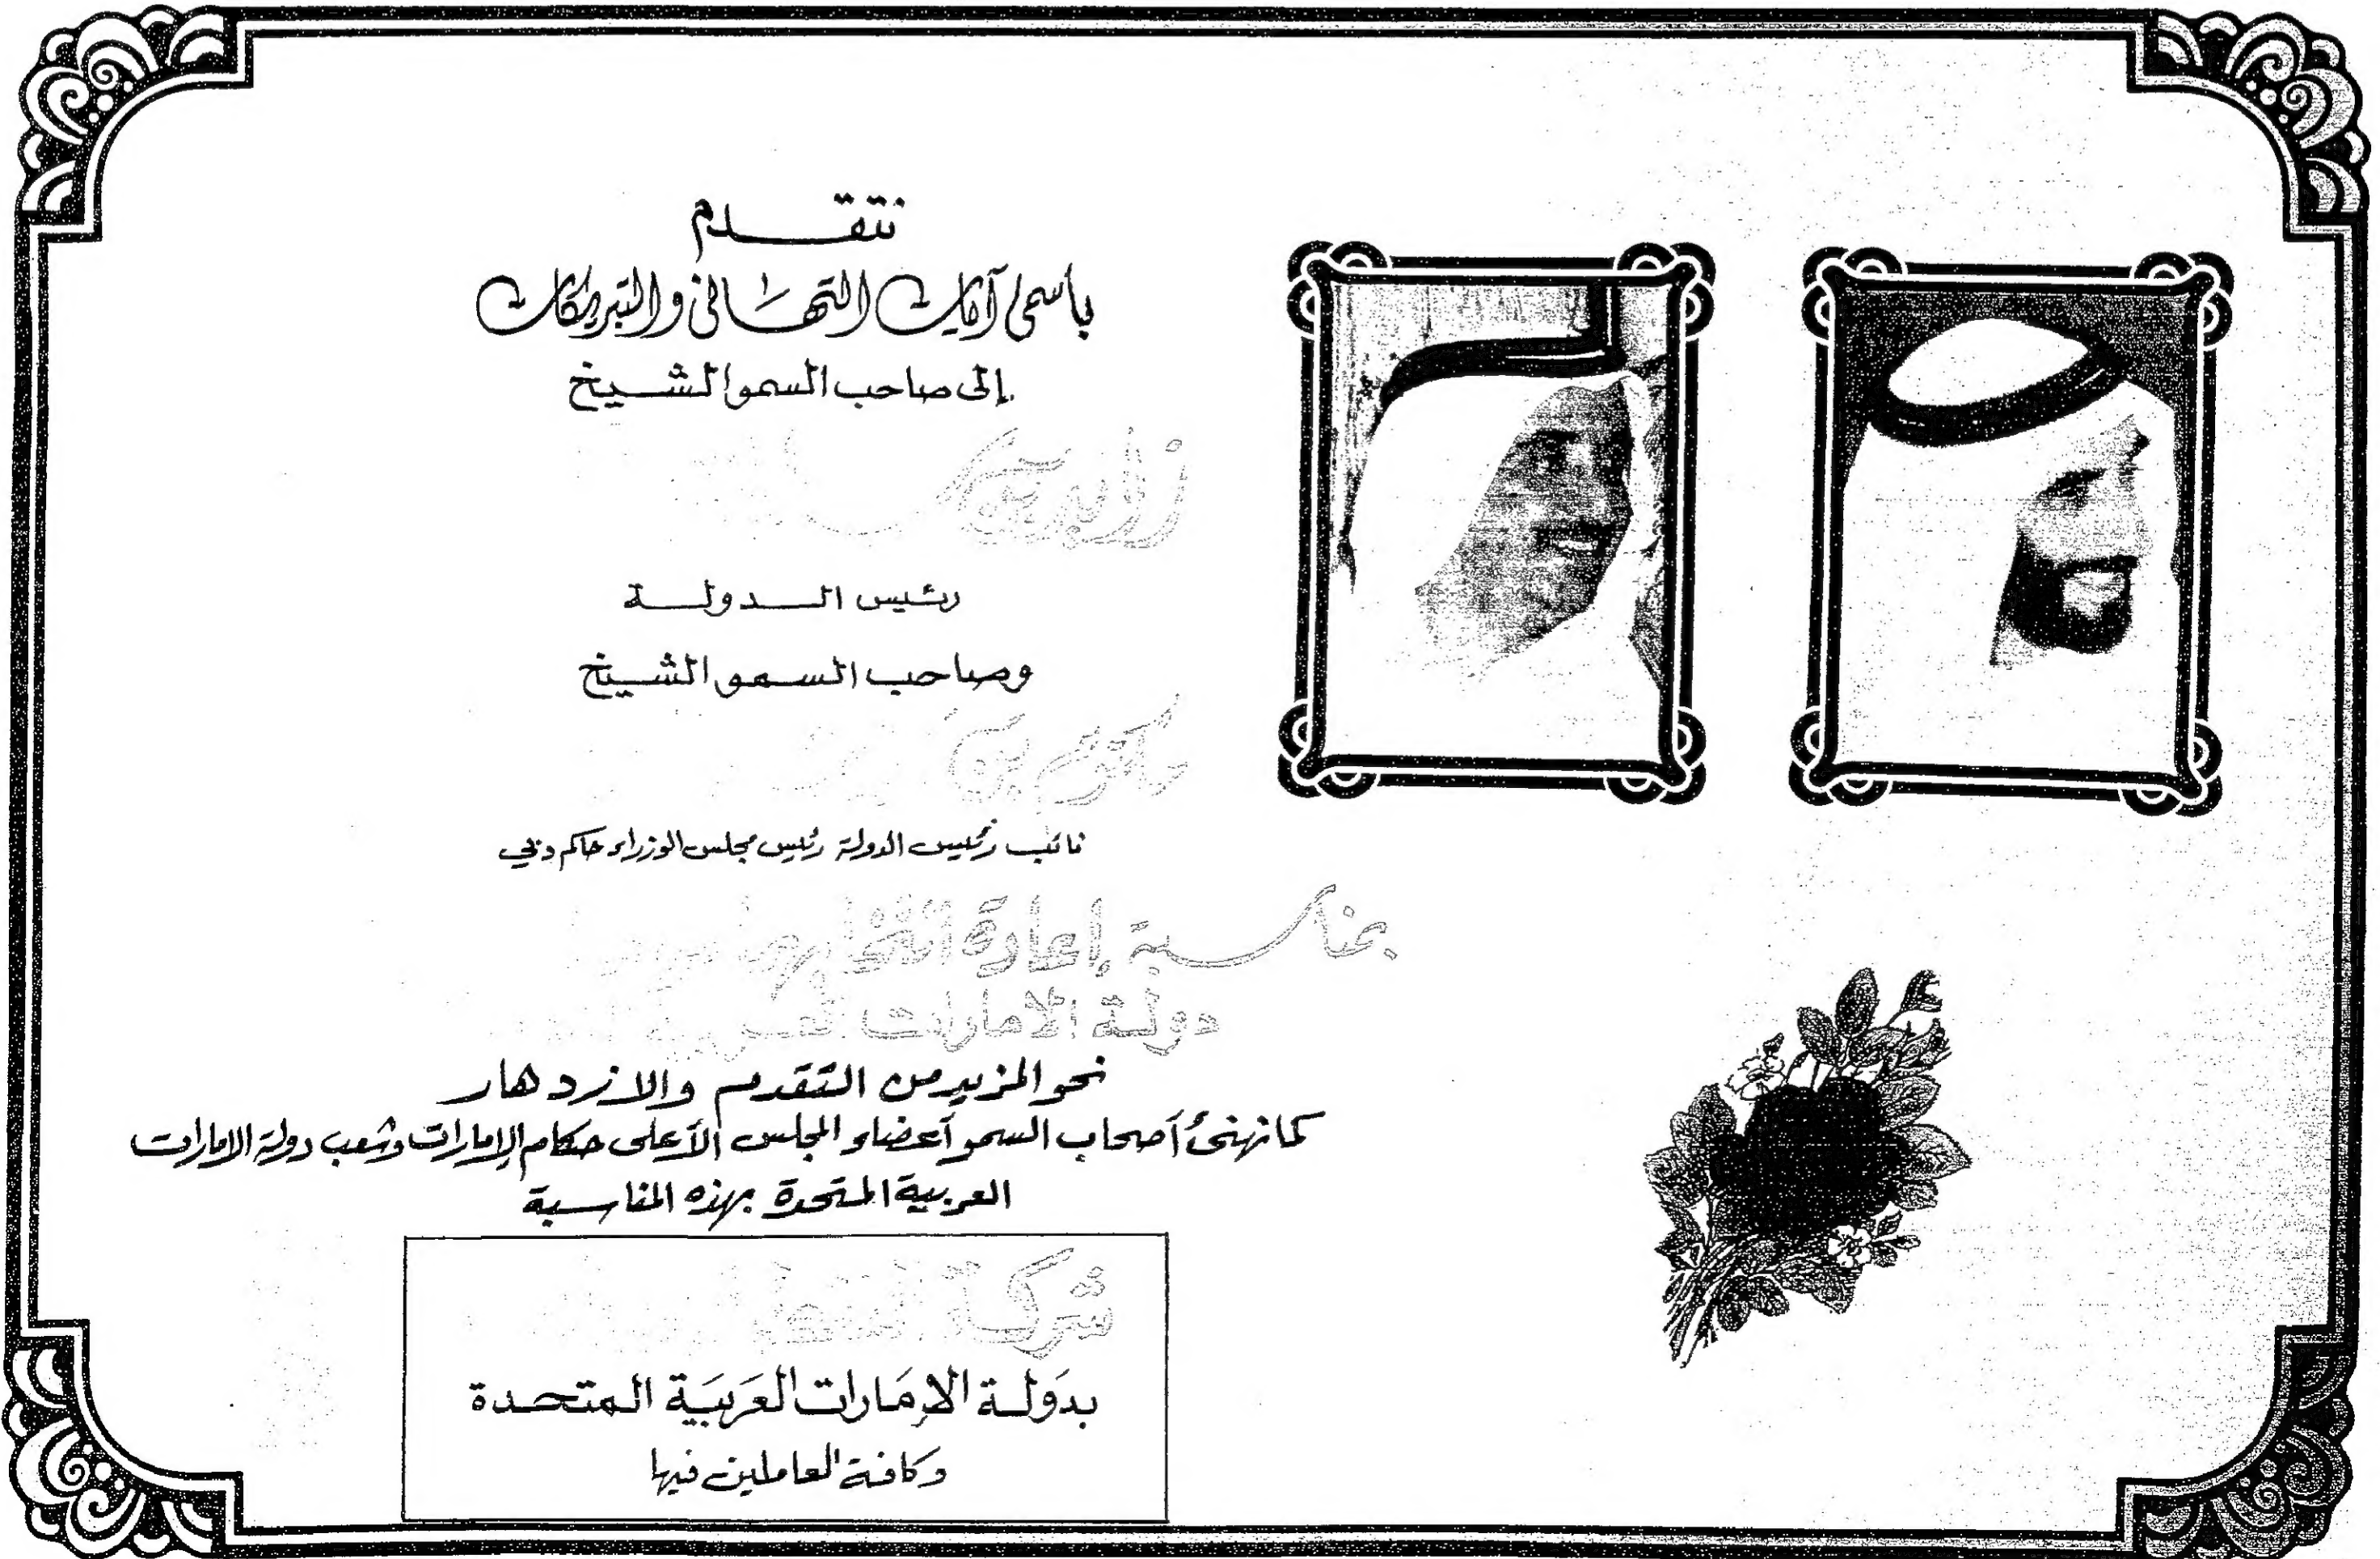 نتقدم
بأسمى آيات التهاني والتبريكات
إلى صاحب السمو الشيخ
زايد بن
رئيس الدولة
وصاحب السمو الشيخ
مكتوم بن
نائب رئيس الدولة رئيس مجلس الوزراء حاكم دبي
بمناسبة إعادة
دولة الامارات
نحو المزيد من التقدم والازدهار
كما نهنئ أصحاب السمو أعضاء المجلس الأعلى حكام الإمارات وشعب دولة الامارات
العربية المتحدة بهذه المناسبة
شركة
بدَولة الإمَارات العَربيَة المتحدة
وكافة العاملين فيها